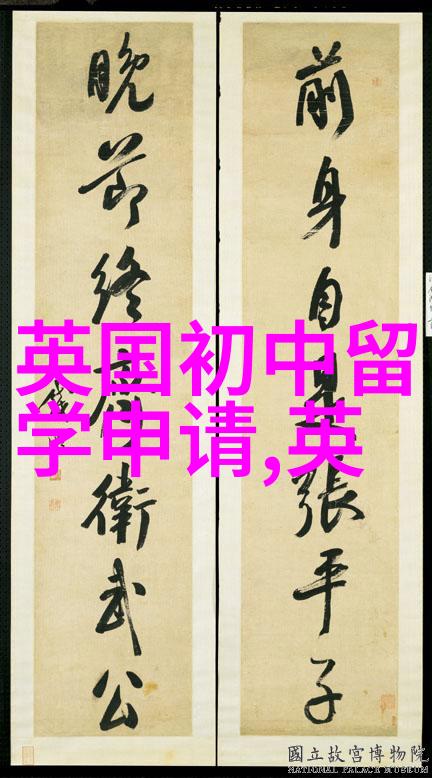 前身自是張平子
晚節終齊衛武公
英国初中留
学申请,英
國立故宮博物院
NATIONAL PALACE MUSEUM